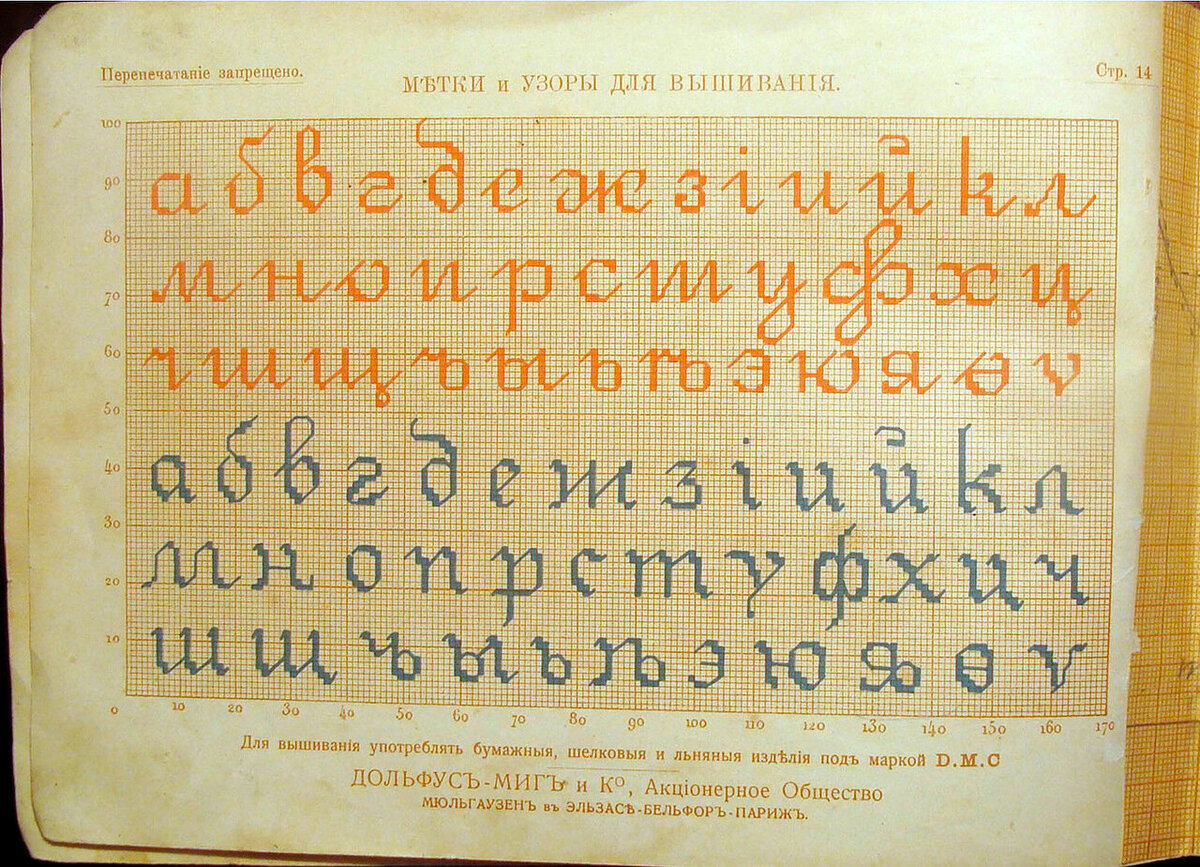 Перепечатаніе запрещено.
МѢТКИ и УЗОРЫ ДЛЯ ВЫШИВАНІЯ.
Стр. 14
100
90
а б в г д е ж з і и й к л
80
м н о п р с т у ф х ц
70
60
ч ш щ ъ ы ь ѣ э ю я ѳ ѵ
50
40
а б в г д е ж з і и й к л
30
м н о п р с т у ф х ц ч
20
10
ш щ ъ ы ь ѣ э ю я ѳ ѵ
0 10 20 30 40 50 60 70 80 90 100 110 120 130 140 150 160 170
Для вышиванія употреблять бумажныя, шелковыя и льняныя издѣлія подъ маркой D.M.C
ДОЛЬФУСЪ-МИГЪ и Кº, Акціонерное Общество
МЮЛЬГАУЗЕНЪ въ ЭЛЬЗАСѢ-БЕЛЬФОРЪ-ПАРИЖЪ.